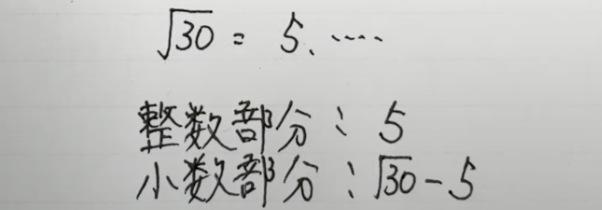 √30 = 5.····
整数部分：5
小数部分：√30-5